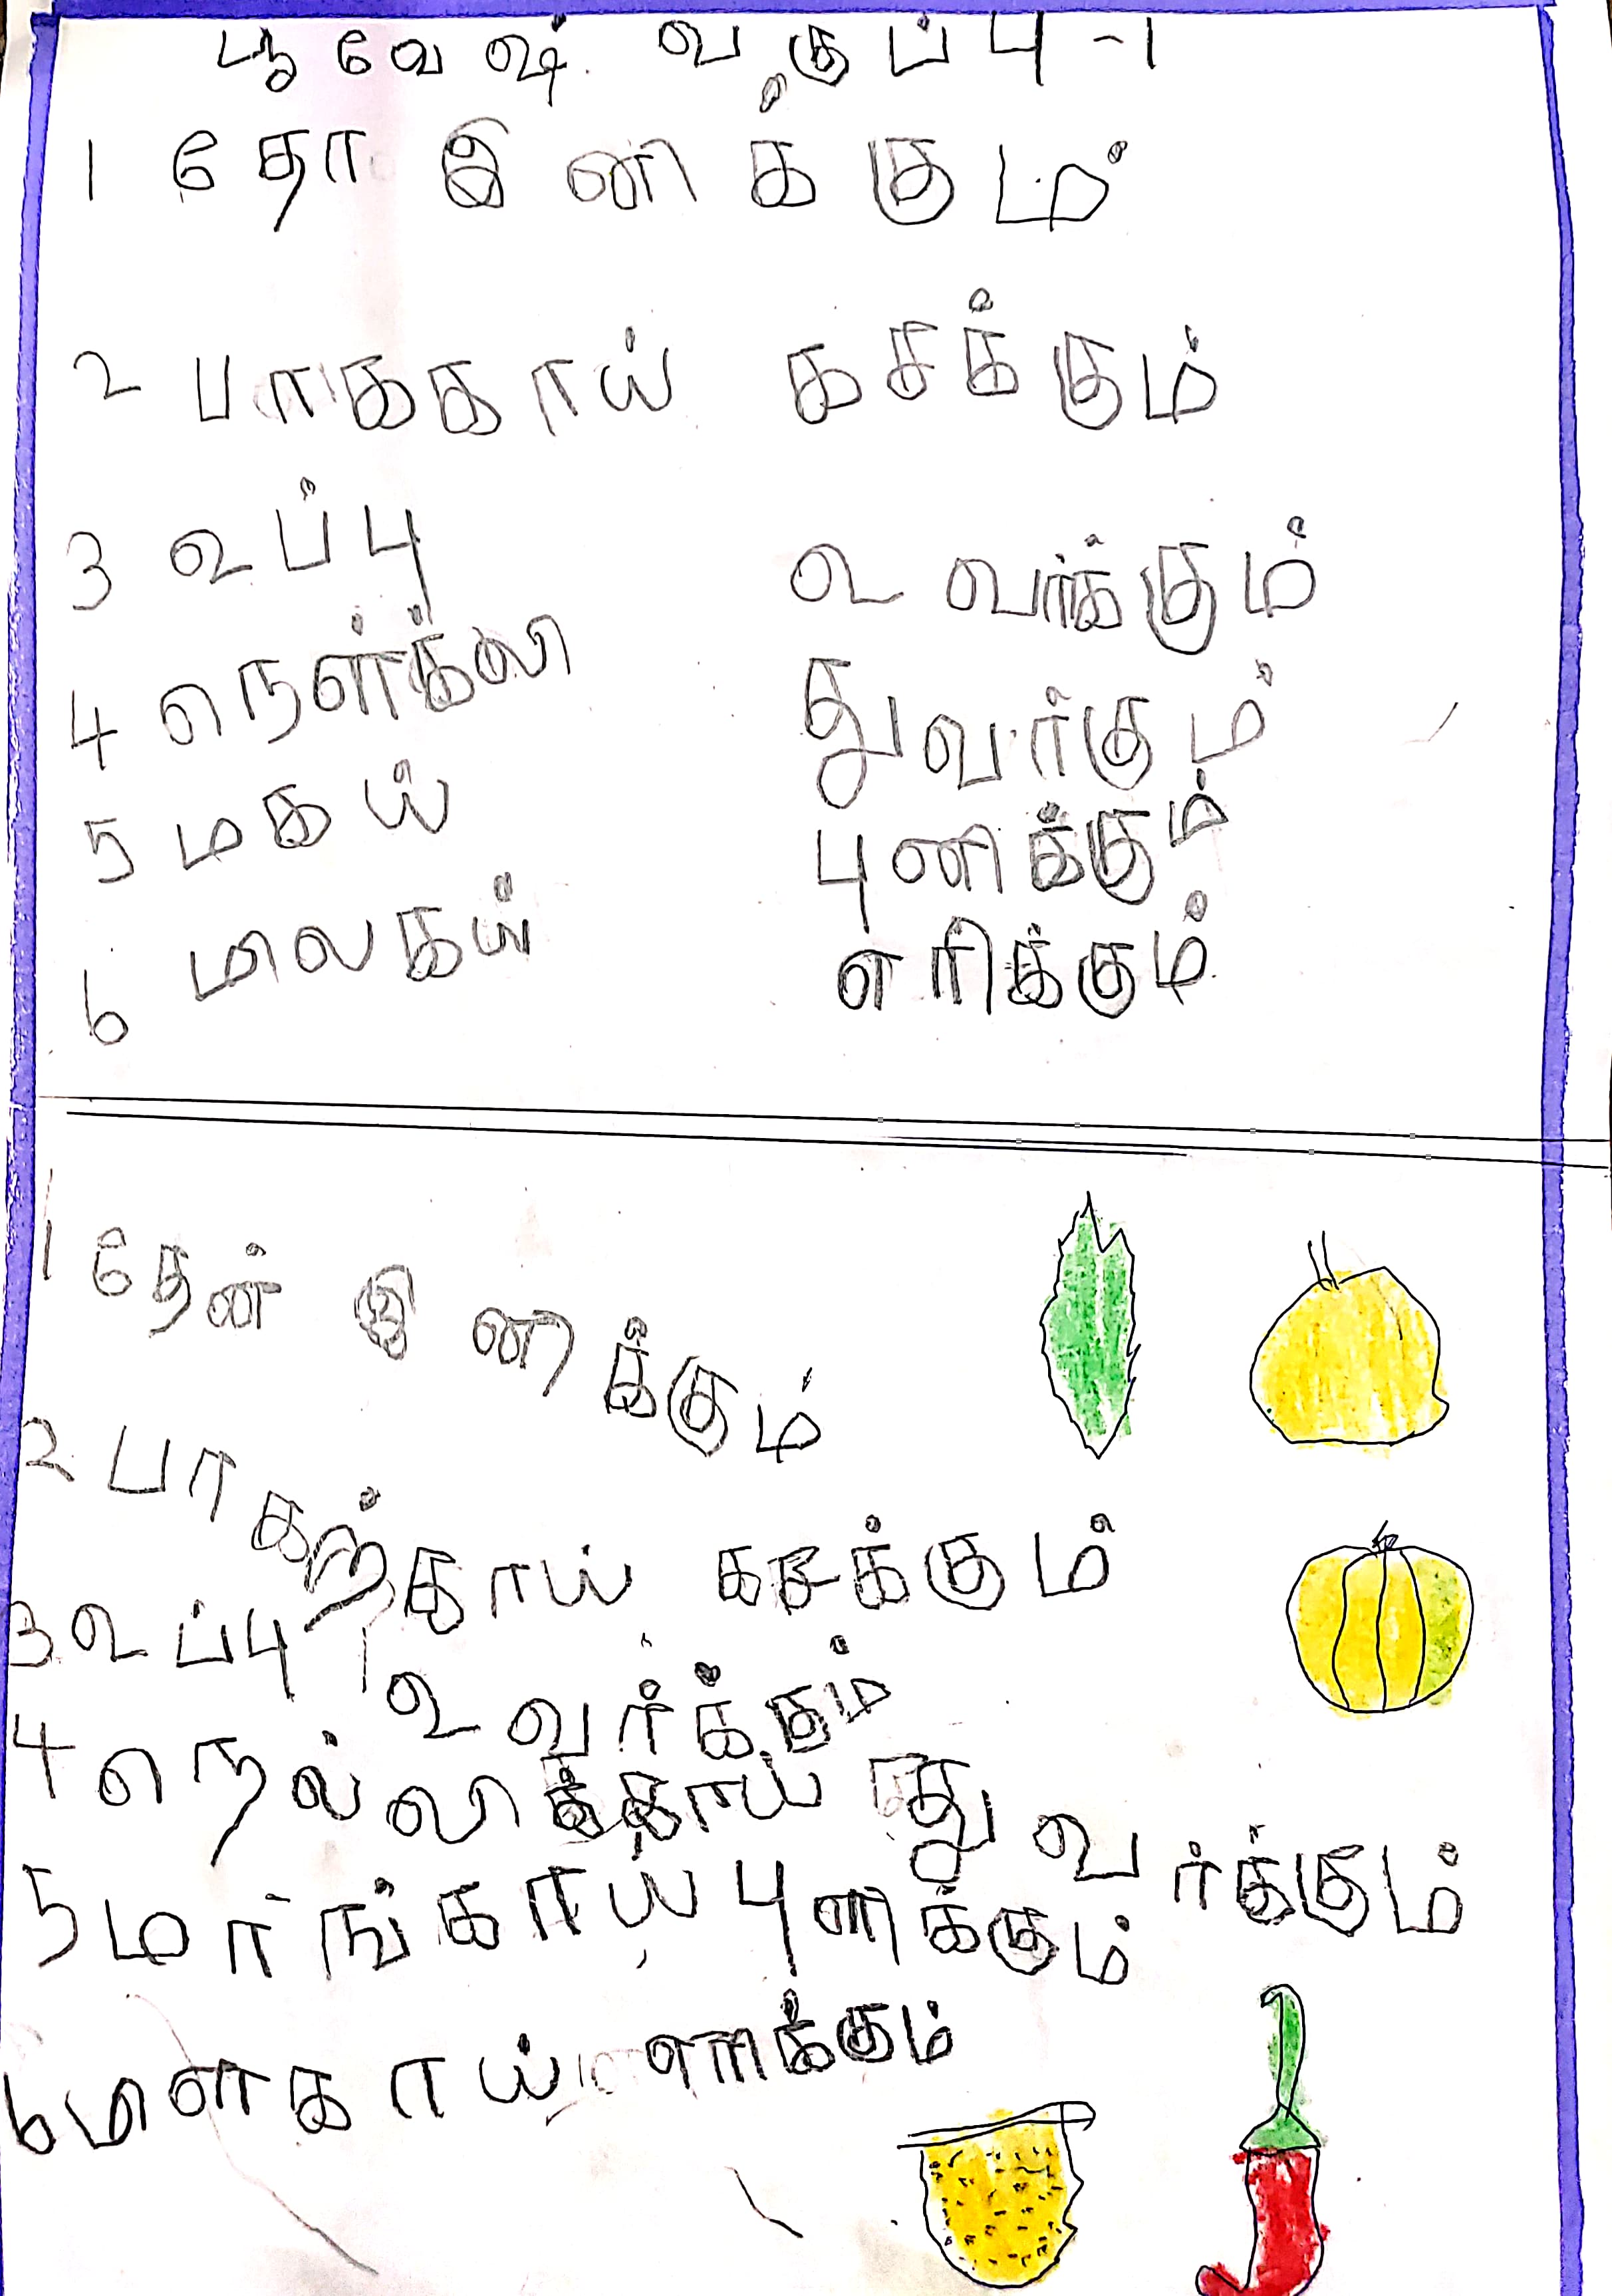 பூவேஷ் வகுப்பு -1
1 தோ இனிக்கும்
2 பாககாய் கசக்கும்
3 உப்பு உவர்க்கும்
4 நெள்க்லி துவர்கும்
5 மகய் புனிக்கும்
6 மிலகய் எரிக்கும்
1 தேன் இனிக்கும்
2 பாகற்காய் கசக்கும்
3 உப்பு உவர்க்கும்
4 நெல்லிக்காய் துவர்க்கும்
5 மாங்காய் புளிக்கும்
6 மிளகாய்